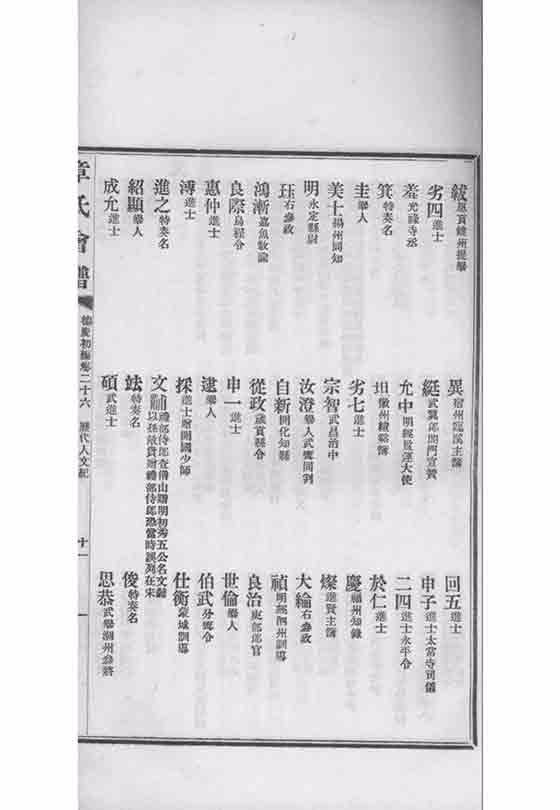 絨 歲貢饒州提舉
異 宿州臨渙主簿
回五 進士
劣四 進士
鋌 武翼郎閤門宣贊
申子 進士太常寺司儀
羔 光祿寺丞
允中 明經監運大使
二四 進士永平令
箕 特奏名
坦 徽州績谿簿
於仁 進士
圭 舉人
劣七 進士
慶 福州知錄
美士 揚州同知
宗智 武昌治中
燦 進賢主簿
明 永定縣尉
汝澄 舉人武寧同判
大綸 右參政
珏 右參政
自新 開化知縣
禎 明經泗州訓導
鴻漸 嘉魚教諭
從政 歲貢縣令
良治 吏部郎官
良際 烏程令
申一 進士
世倫 舉人
惠仲 進士
建 舉人
伯武 分寧令
溥 進士
採 進士贈開國少師
仕衡 蒙城訓導
進之 特奏名
文 禮部侍郎查僑山贈明初秀五公名文
以孫敞貴贈禮部侍郎恐當時誤列在宋
俊 特奏名
紹顯 舉人
竑 特奏名
思恭 武舉潮州參將
成允 進士
碩 武進士
章氏會譜
德慶初編卷二十六
歷代人文記
十一